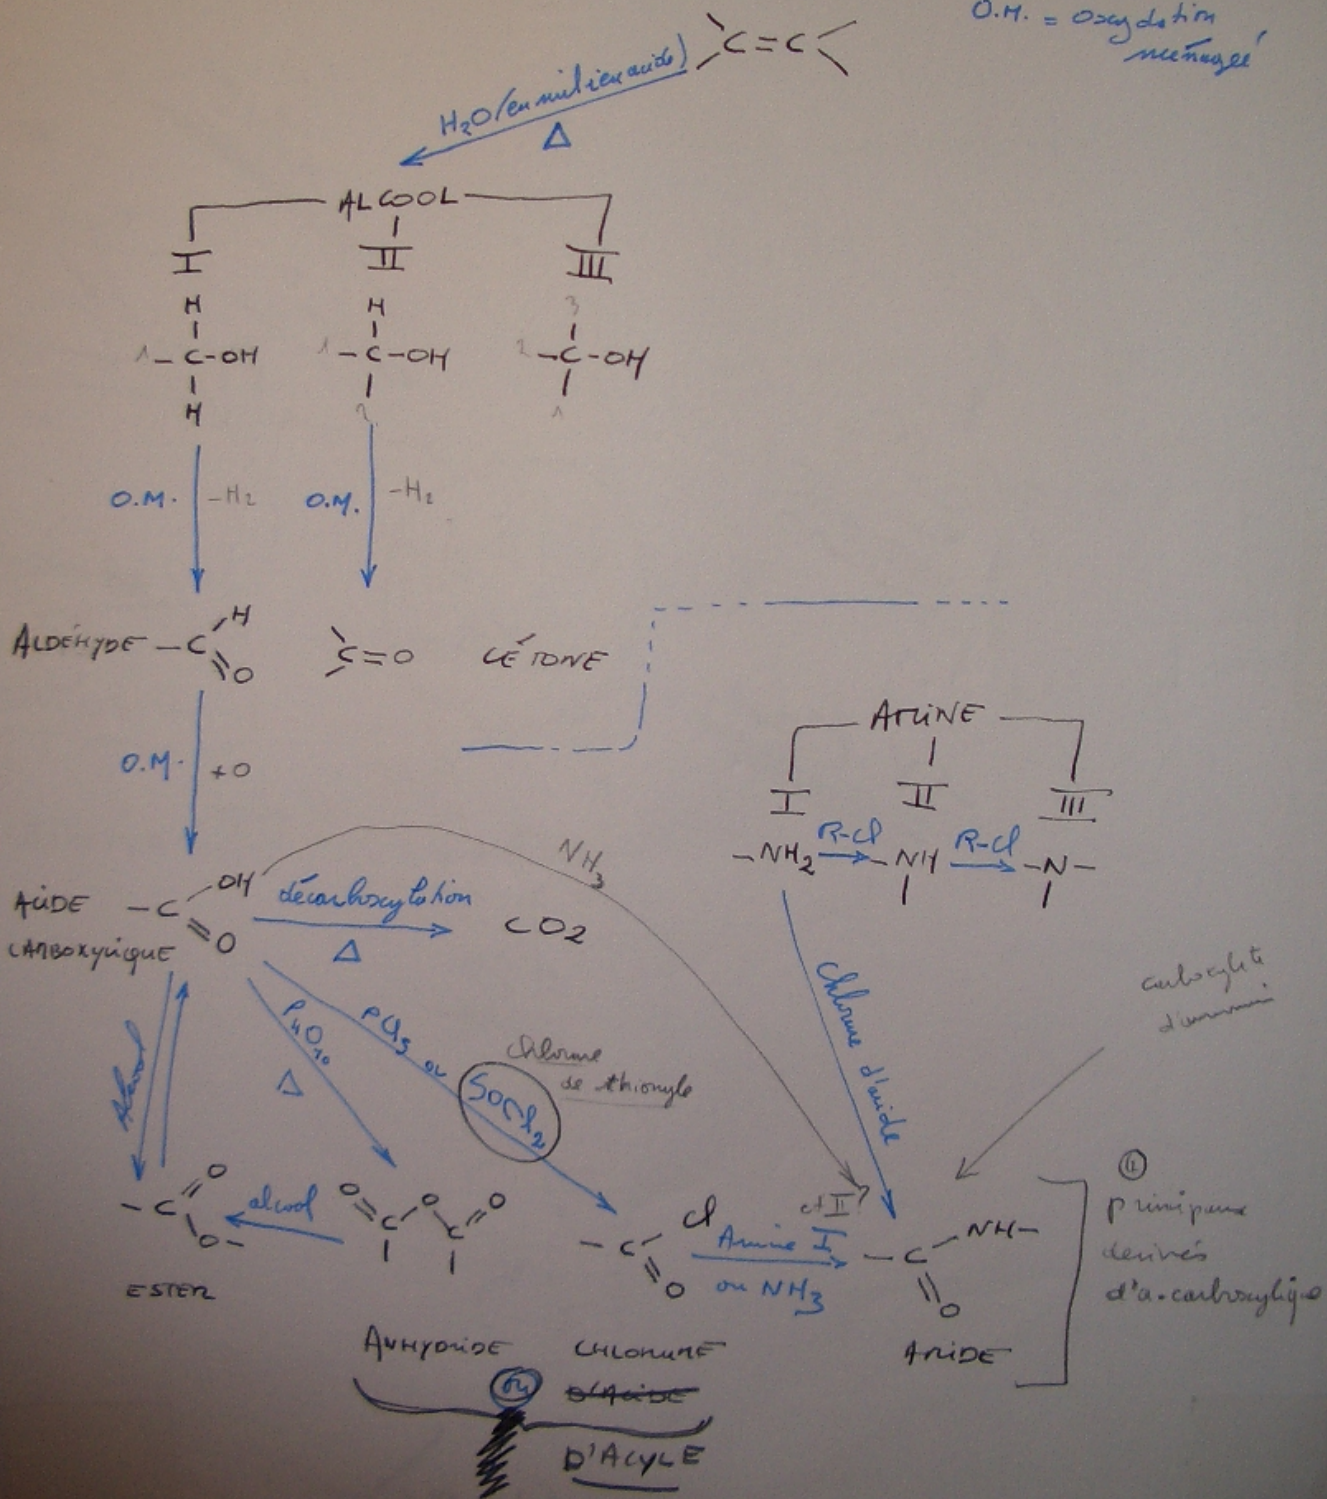 O.M. = Oxydation
ménagée
C=C
H2O (en milieu acide)
Δ
ALCOOL
I
II
III
H
H
3
1 -C-OH
1 -C-OH
2 -C-OH
H
2
1
O.M. -H2
O.M. -H2
ALDÉHYDE -C
H
O
C=O
CÉTONE
O.M. +O
AMINE
I
II
III
-NH2
R-Cl
-NH
R-Cl
-N-
NH3
ACIDE
CARBOXYLIQUE
-C
OH
O
décarboxylation
Δ
CO2
Alcool
P4O10
Δ
PCl5 ou SOCl2
chlorure
de thionyle
chlorure d'acide
carboxylate
d'ammonium
-C
O
O-
ESTER
alcool
O
C
O
C
O
ANHYDRIDE
ou
-C
Cl
O
CHLORURE
D'ACIDE
D'ACYLE
et II?
Amine I
ou NH3
-C
NH-
O
AMIDE
4
principaux
dérivés
d'a.carboxylique